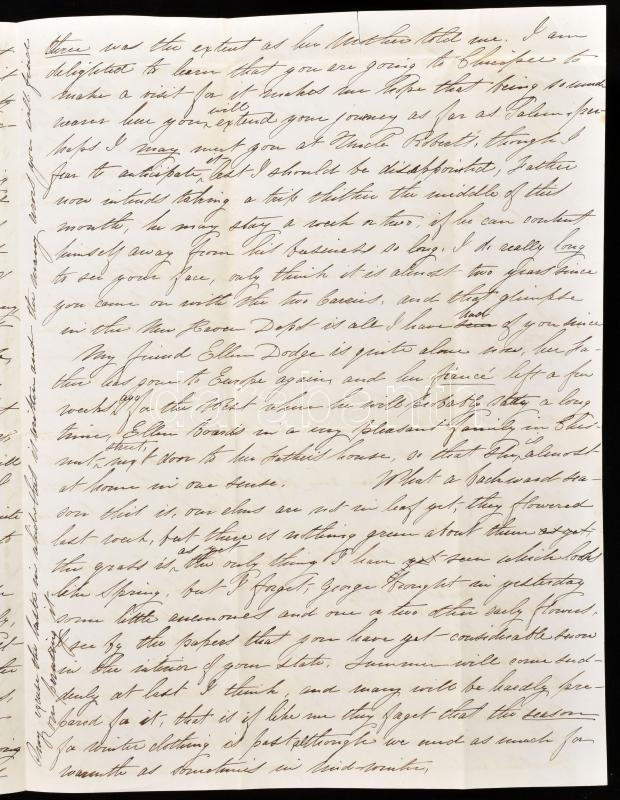 three was the extent as her Mother told me. I am
delighted to learn that you are going to Chicopee to
make a visit for it makes me hope that being so much
nearer here you will extend your journey as far as Salem & per-
haps I may meet you at Uncle Robert's, though I
fear to anticipate it lest I should be disappointed, Father
now intends taking a trip thither the middle of this
month, he may stay a week or two, if he can content
himself away from his business so long. I do really long
to see your face, only think it is almost two years since
you came on with the two Carries, and that glimpse
in the New Haven Depot is all I have had of you since
My friend Ellen Dodge is quite alone now, her fa-
ther has gone to Europe again, and her fiancé left a few
weeks ago for the West where he will probably stay a long
time, Ellen boards in a very pleasant family in Ches-
nut street, next door to her Father's house, so that she is almost
at home in one sense. What a backward sea-
son this is, our elms are not in leaf yet, they flowered
last week, but there is nothing green about them as yet,
the grass is as yet the only thing I have seen which looks
like Spring. but I forget, George brought in yesterday
some little anemones and one or two other early flowers.
I see by the papers that you have yet considerable snow
in the interior of your state. Summer will come sud-
denly at last I think, and many will be hardly pre-
pared for it, that is if like me they forget that the season
for winter clothing is past although we need as much for
warmth as sometimes in mid-winter.
Pray excuse the haste in which this is written and the many errors you will find
on perusing it
darabanth